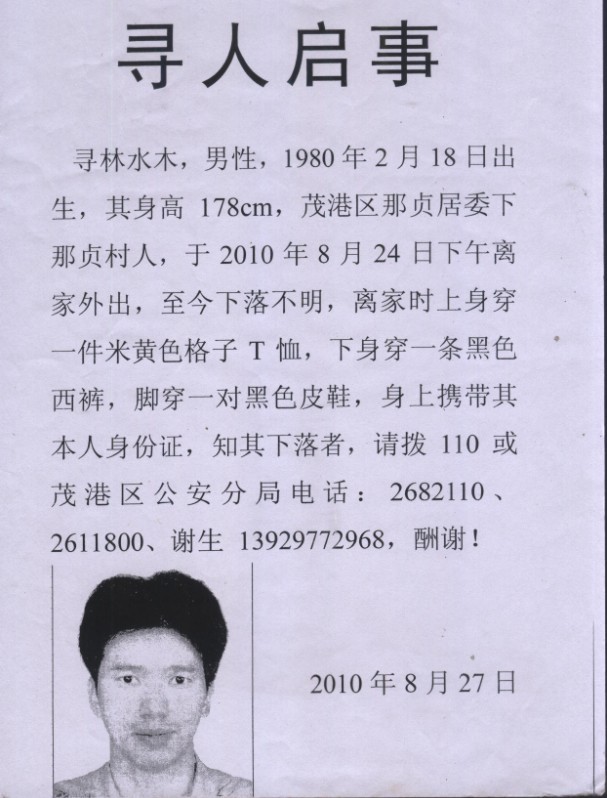 寻人启事
寻林水木，男性，1980年2月18日出
生，其身高 178cm，茂港区那贞居委下
那贞村人，于2010年8月24日下午离
家外出，至今下落不明，离家时上身穿
一件米黄色格子T恤，下身穿一条黑色
西裤，脚穿一对黑色皮鞋，身上携带其
本人身份证，知其下落者，请拨 110 或
茂港区公安分局电话：2682110、
2611800、谢生 13929772968，酬谢！
2010年8月27日